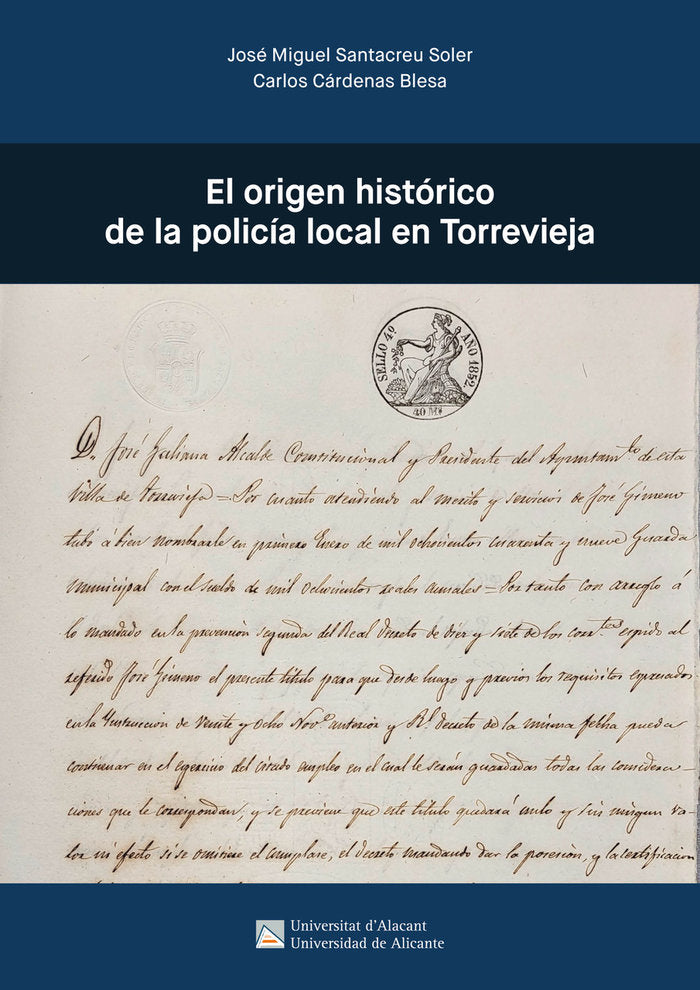 José Miguel Santacreu Soler
Carlos Cárdenas Blesa
El origen histórico
de la policía local en Torrevieja
SELLO 4º AÑO 1852.
40 Ms
D. José Galiana Alcalde Constitucional y Presidente del Ayuntamto de esta
Villa de Torrevieja = Por cuanto atendiendo al merito y servicios de José Gimeno
tubó á bien nombrarle en primero Enero de mil ochocientos cuarenta y nueve Guarda
municipal con el sueldo de mil ochocientos reales anuales = Por tanto con arreglo á
lo mandado en la prevencion segunda del Real Decreto de diez y siete de los corrtes espido al
referido José Gimeno el presente titulo para que desde luego y previos los requisitos espresados
en la Ynstruccion de veinte y ocho Nove anterior y Rl. Decreto de la misma fecha pueda
continuar en el egercicio del citado empleo en el cual le serán guardadas todas las considera-
ciones que le correspondan, y se previene que este titulo quedará nulo y sin ningun va-
lor ni efecto si se omitiere el cumplase, el decreto mandando dar la posesion, y la certificacion
Universitat d'Alacant
Universidad de Alicante